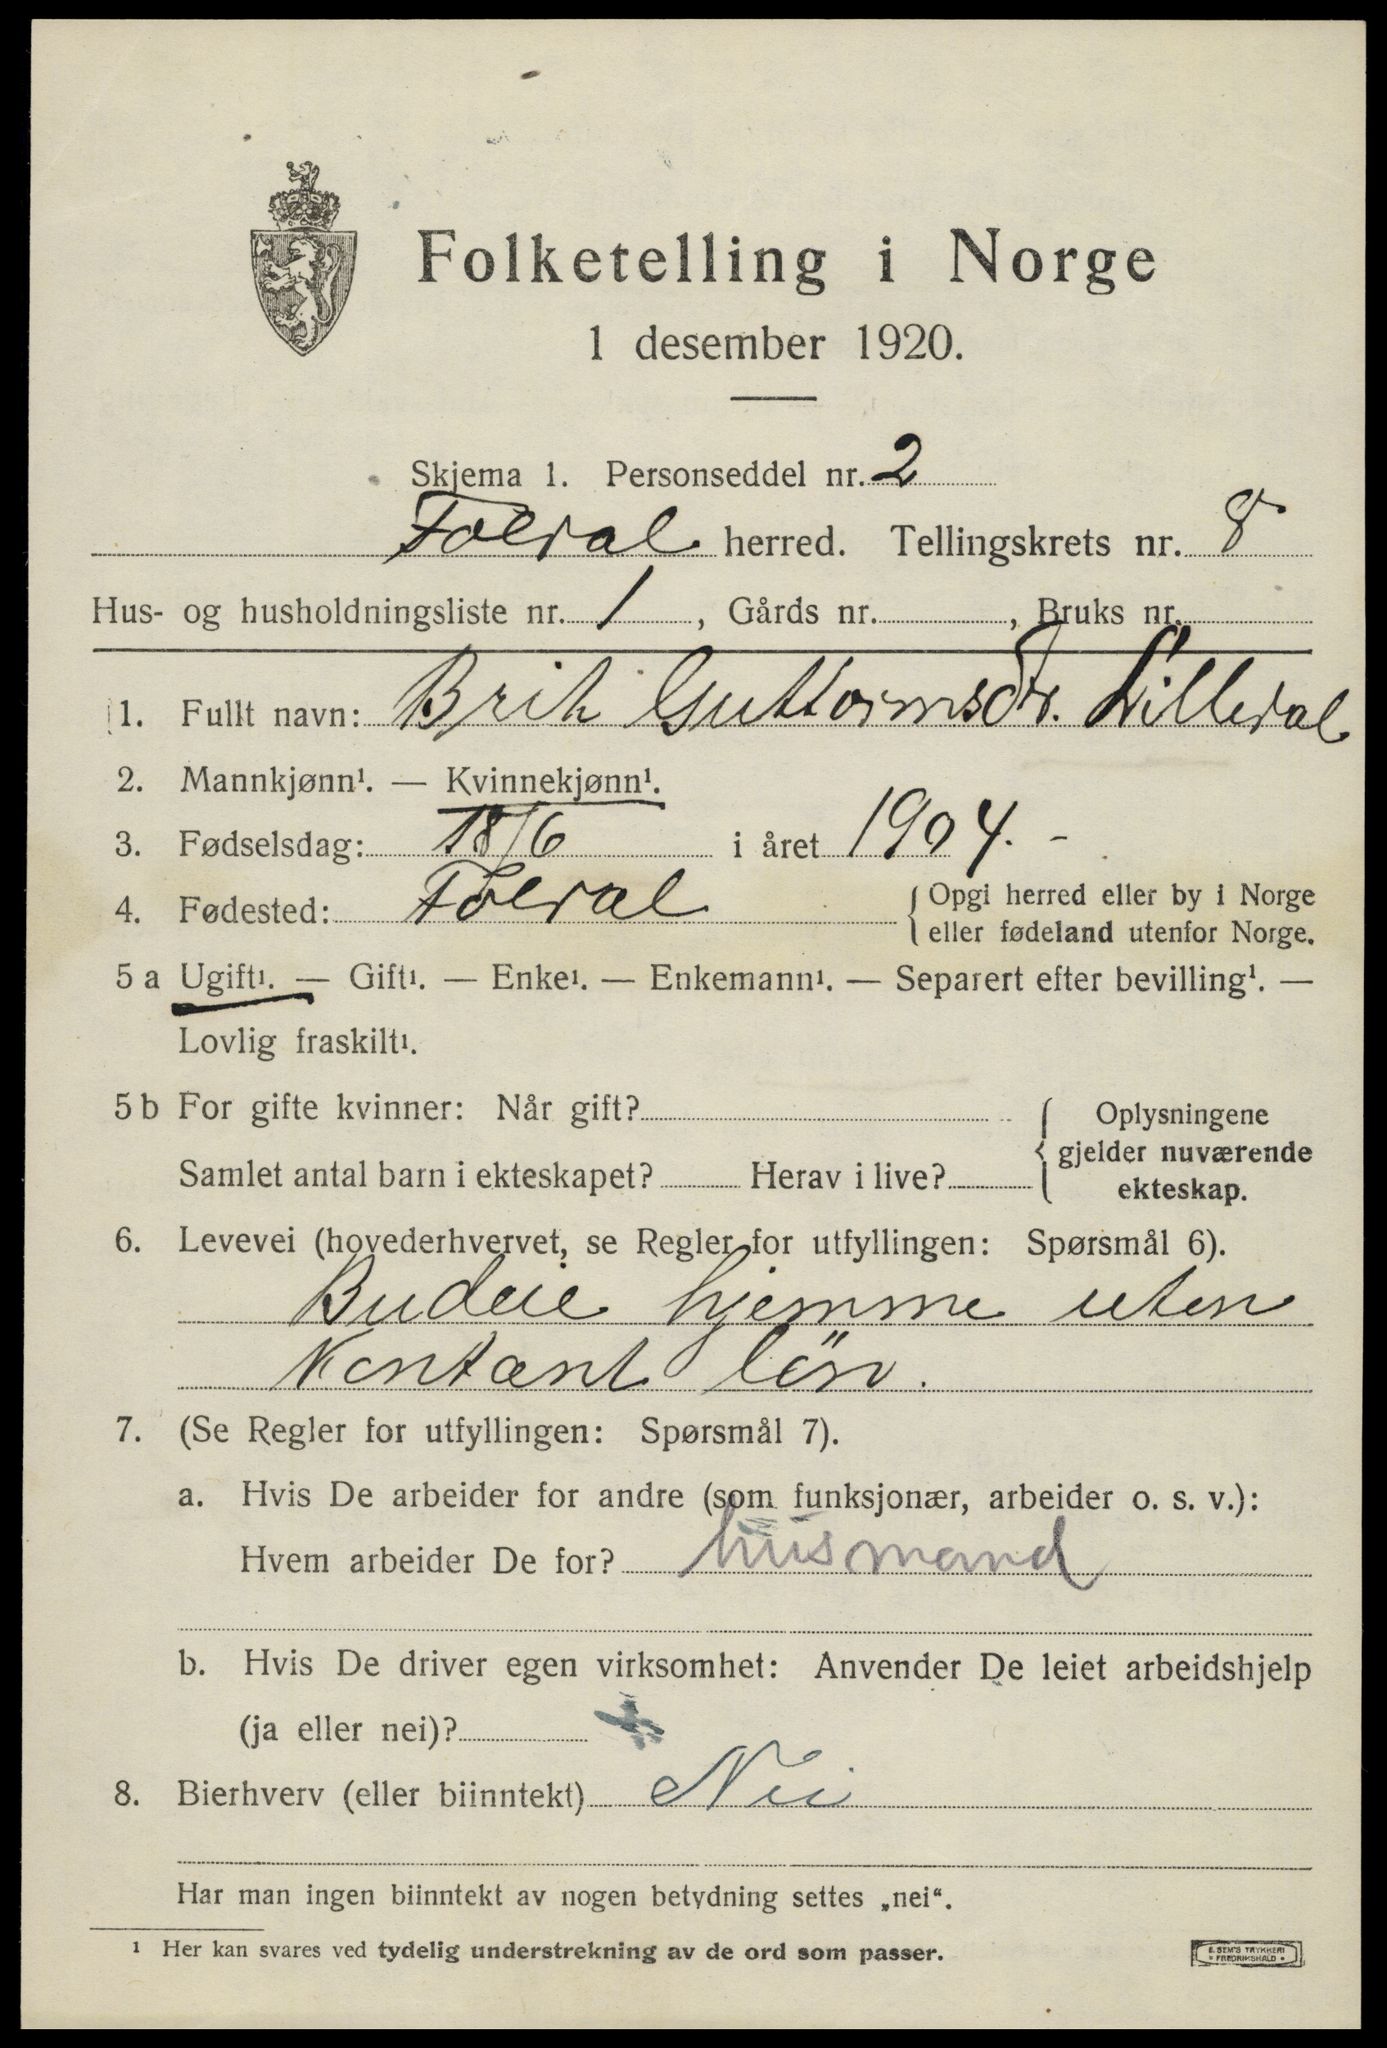 Folketelling i Norge
1 desember 1920.
Skjema 1. Personseddel nr. 2
Foldal herred. Tellingskrets nr. 8
Hus- og husholdningsliste nr. 1, Gårds nr. , Bruks nr.
1. Fullt navn: Brit Guttormsdtr. Lilledal
2. Mannkjønn¹. — Kvinnekjønn¹.
3. Fødselsdag: 18/6 i året 1904. -
4. Fødested: Foldal { Opgi herred eller by i Norge
eller fødeland utenfor Norge.
5 a Ugift¹. — Gift¹. — Enke¹. — Enkemann¹. — Separert efter bevilling¹. —
Lovlig fraskilt¹.
5 b For gifte kvinner: Når gift? { Oplysningene
gjelder nuværende
Samlet antal barn i ekteskapet? Herav i live?
ekteskap.
6. Levevei (hovederhvervet, se Regler for utfyllingen: Spørsmål 6).
Budeie hjemme uten
kontant lön.
7. (Se Regler for utfyllingen: Spørsmål 7).
a. Hvis De arbeider for andre (som funksjonær, arbeider o. s. v.):
Hvem arbeider De for? husmand
b. Hvis De driver egen virksomhet: Anvender De leiet arbeidshjelp
(ja eller nei)?
8. Bierhverv (eller biinntekt) Nei
Har man ingen biinntekt av nogen betydning settes „nei“.
¹ Her kan svares ved tydelig understrekning av de ord som passer.
E. SEM'S TRYKKERI
FREDRIKSHALD